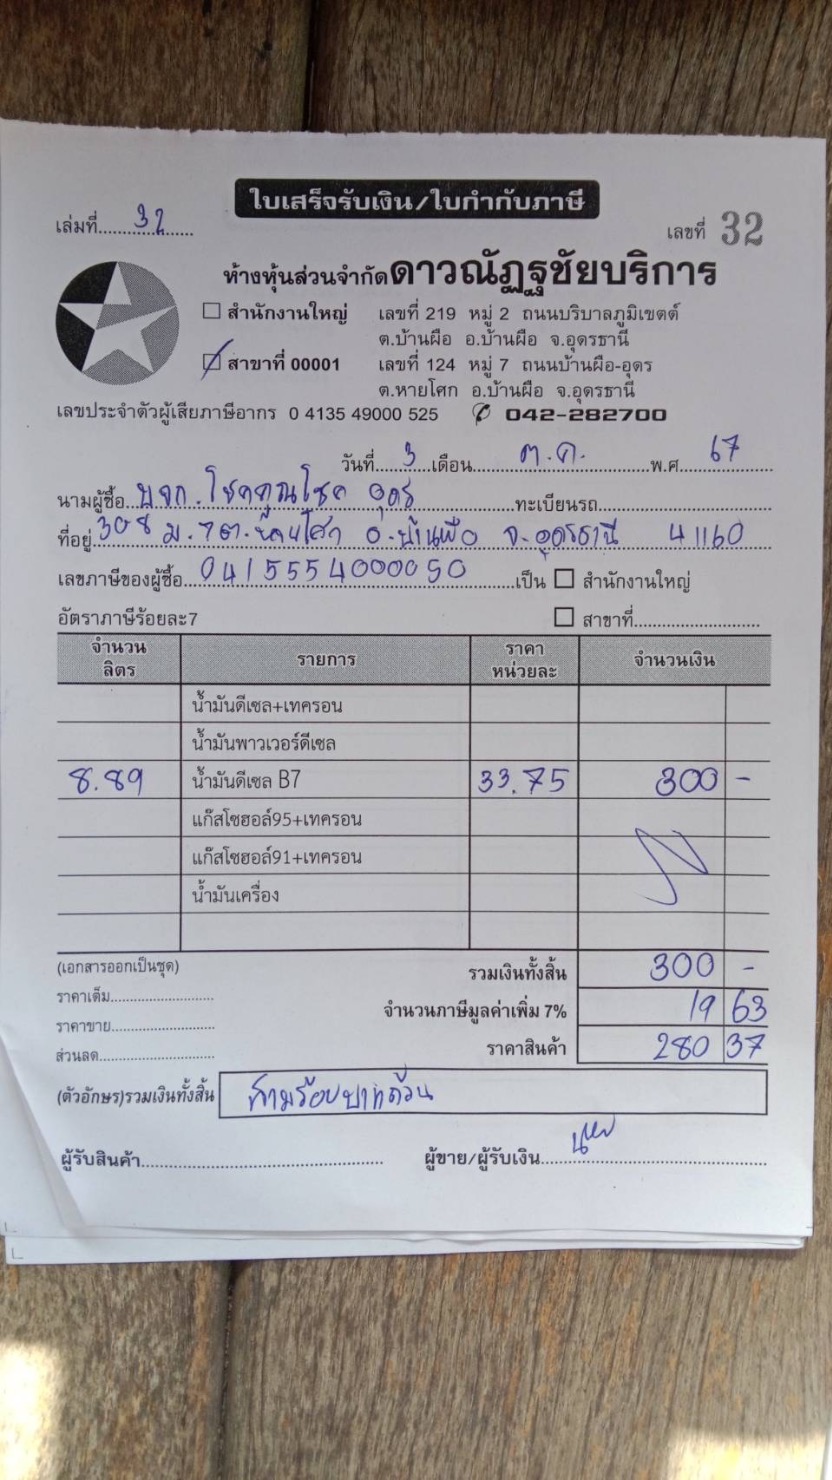 ใบเสร็จรับเงิน/ใบกำกับภาษี
เล่มที่ 32 เลขที่ 32
ห้างหุ้นส่วนจำกัดดาวณัฏฐชัยบริการ
สำนักงานใหญ่ เลขที่ 219 หมู่ 2 ถนนบริบาลภูมิเขตต์
ต.บ้านผือ อ.บ้านผือ จ.อุดรธานี
สาขาที่ 00001 เลขที่ 124 หมู่ 7 ถนนบ้านผือ-อุดร
ต.หายโศก อ.บ้านผือ จ.อุดรธานี
เลขประจำตัวผู้เสียภาษีอากร 0 4135 49000 525 042-282700
วันที่ 3 เดือน ต.ค. พ.ศ. 67
นามผู้ซื้อ บจก. โชคคูณโชค อุดร ทะเบียนรถ
ที่อยู่ 308 ม.7 ต. อ.บ้านผือ จ.อุดรธานี 41160
เลขภาษีของผู้ซื้อ 0415554000050 เป็น สำนักงานใหญ่
อัตราภาษีร้อยละ7 สาขาที่
จำนวน ลิตร รายการ ราคา หน่วยละ จำนวนเงิน
น้ำมันดีเซล+เทครอน
น้ำมันพาวเวอร์ดีเซล
8.89 น้ำมันดีเซล B7 33.75 300 -
แก๊สโซฮอล์95+เทครอน
แก๊สโซฮอล์91+เทครอน
น้ำมันเครื่อง
(เอกสารออกเป็นชุด) รวมเงินทั้งสิ้น 300 -
ราคาเต็ม จำนวนภาษีมูลค่าเพิ่ม 7% 19 63
ราคาขาย
ส่วนลด ราคาสินค้า 280 37
(ตัวอักษร)รวมเงินทั้งสิ้น สามร้อยบาทถ้วน
ผู้รับสินค้า ผู้ขาย/ผู้รับเงิน